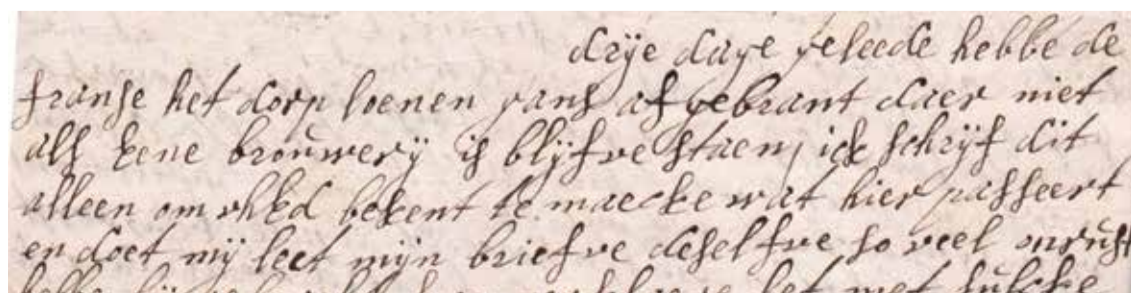 drije dage geleede hebbe de
franse het dorp loenen gans af gebrant daer niet
als eene brouwerij is blijfve staen, ick schrijf dit
alleen om uhEd bekent te maecke wat hier passeert
en doet mij leet mijn briefve deselfve so veel onrust